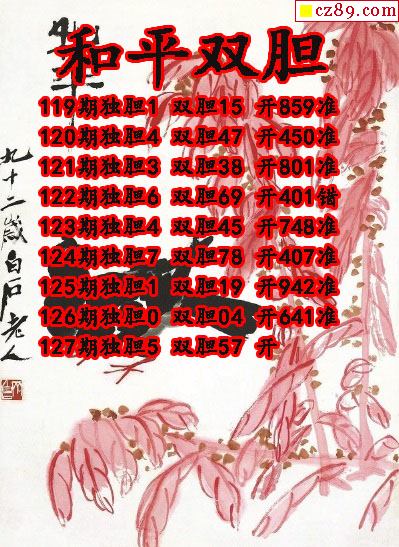 cz89.com
和平双胆
119期独胆1 双胆15 开859准
120期独胆4 双胆47 开450准
121期独胆3 双胆38 开801准
122期独胆6 双胆69 开401错
123期独胆4 双胆45 开748准
124期独胆7 双胆78 开407准
125期独胆1 双胆19 开942准
126期独胆0 双胆04 开641准
127期独胆5 双胆57 开
九十二歲白石老人